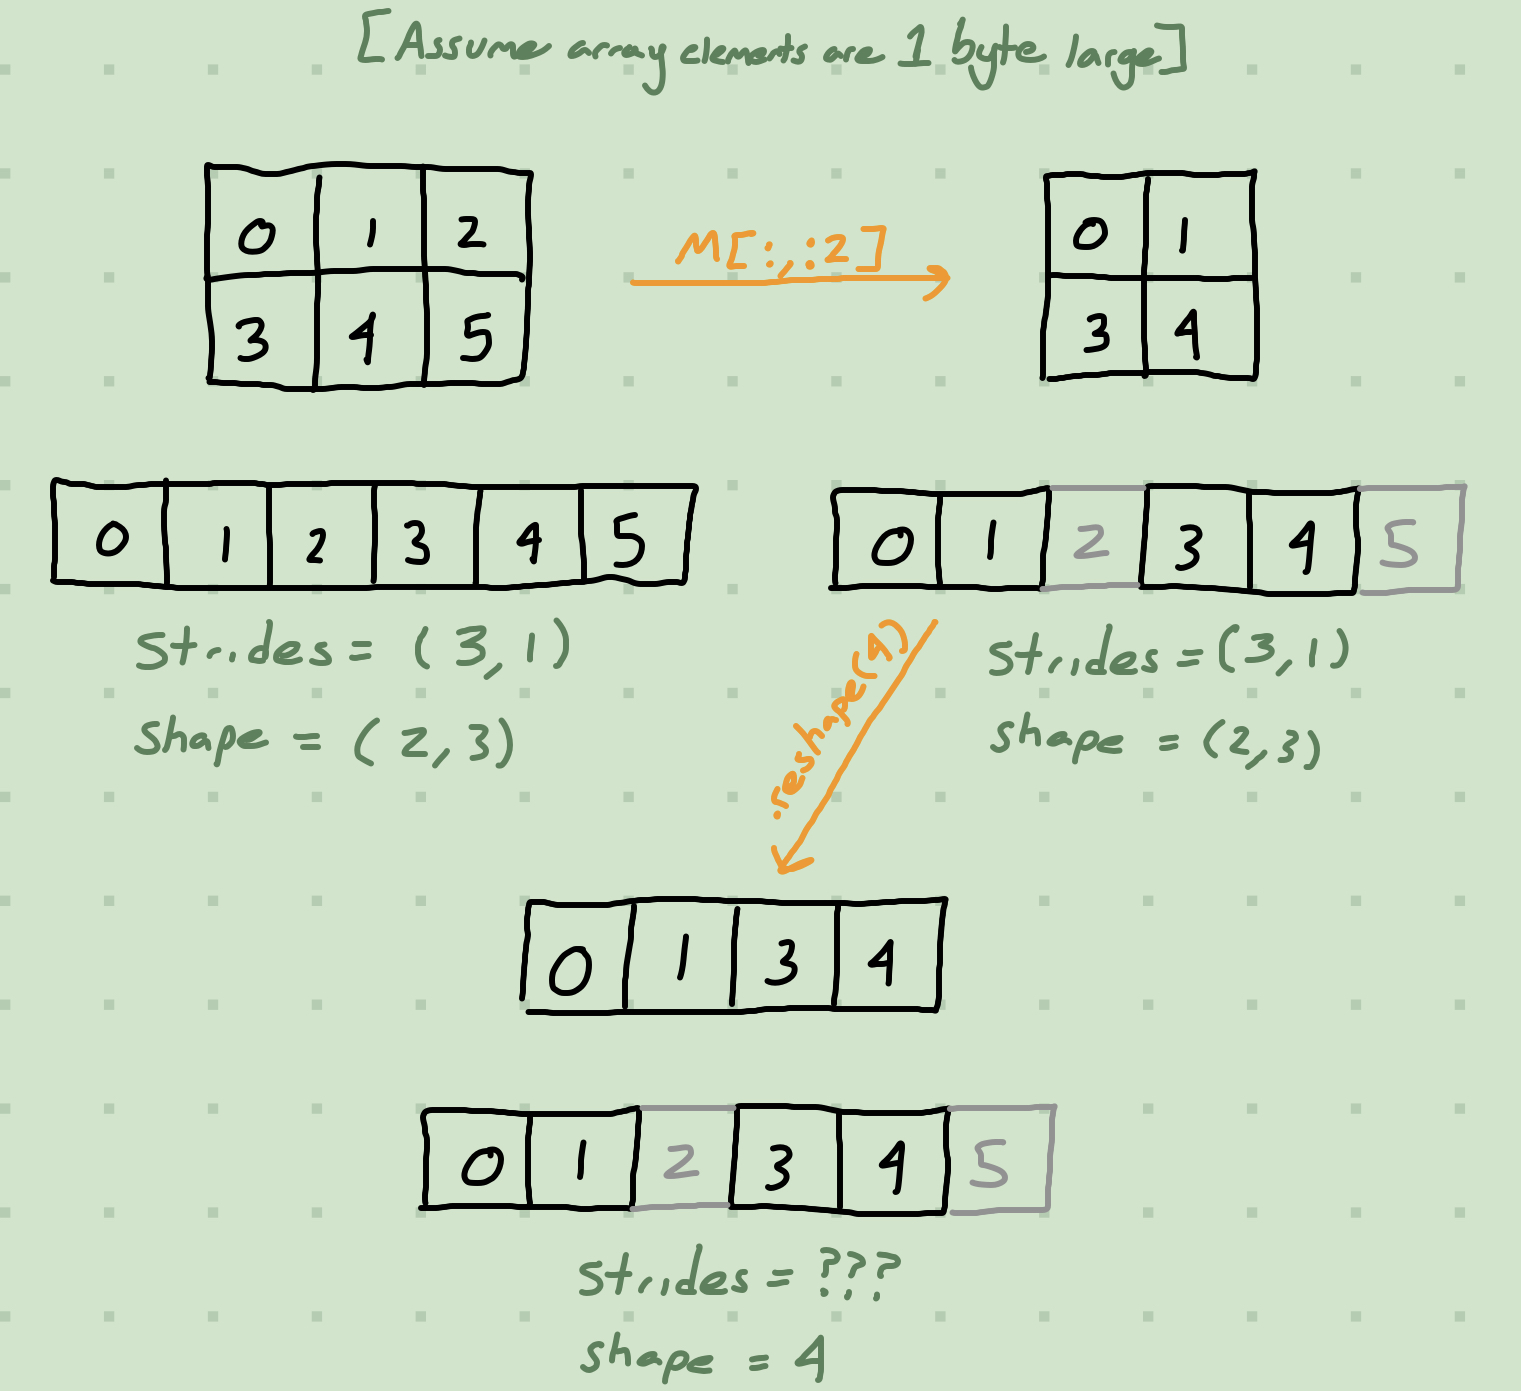 [Assume array elements are 1 byte large]
0 1 2
3 4 5
M[:,:2]
0 1
3 4
0 1 2 3 4 5
strides = (3,1)
shape = (2,3)
0 1 2 3 4 5
strides = (3,1)
shape = (2,3)
.reshape(4)
0 1 3 4
0 1 2 3 4 5
strides = ???
shape = 4